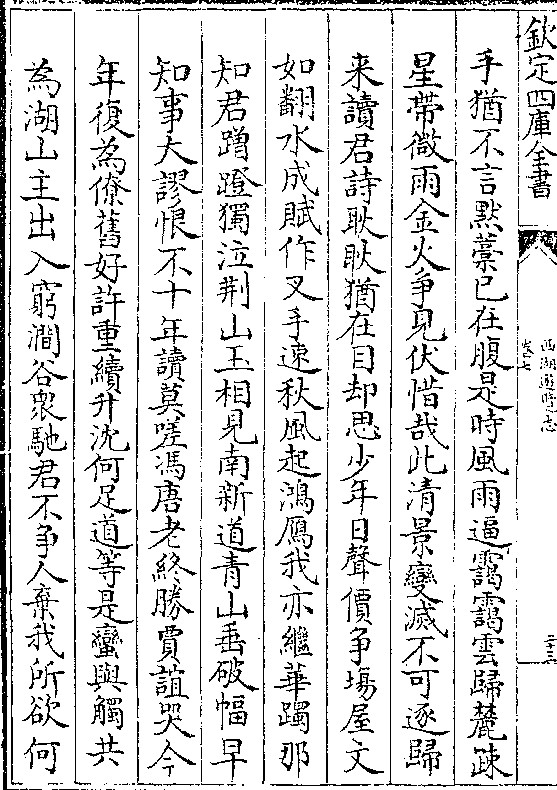 欽定四庫全書
西湖遊覽志
卷七
二十三
手猶不言黙藁已在腹是時風雨逼靄靄雲歸麓疎
星帶微雨金火争見伏惜哉此清景變滅不可逐歸
来讀君詩耿耿猶在目却思少年日聲價争場屋文
如翻水成賦作叉手速秋風起鴻鴈我亦繼華躅那
知君蹭蹬獨泣荆山玉相見南新道青山垂破幅早
知事大謬恨不十年讀莫嗟馮唐老終勝賈誼哭今
年復為僚舊好許重續升沈何足道等是蠻與觸共
為湖山主出入窮澗谷衆馳君不争人棄我所欲何